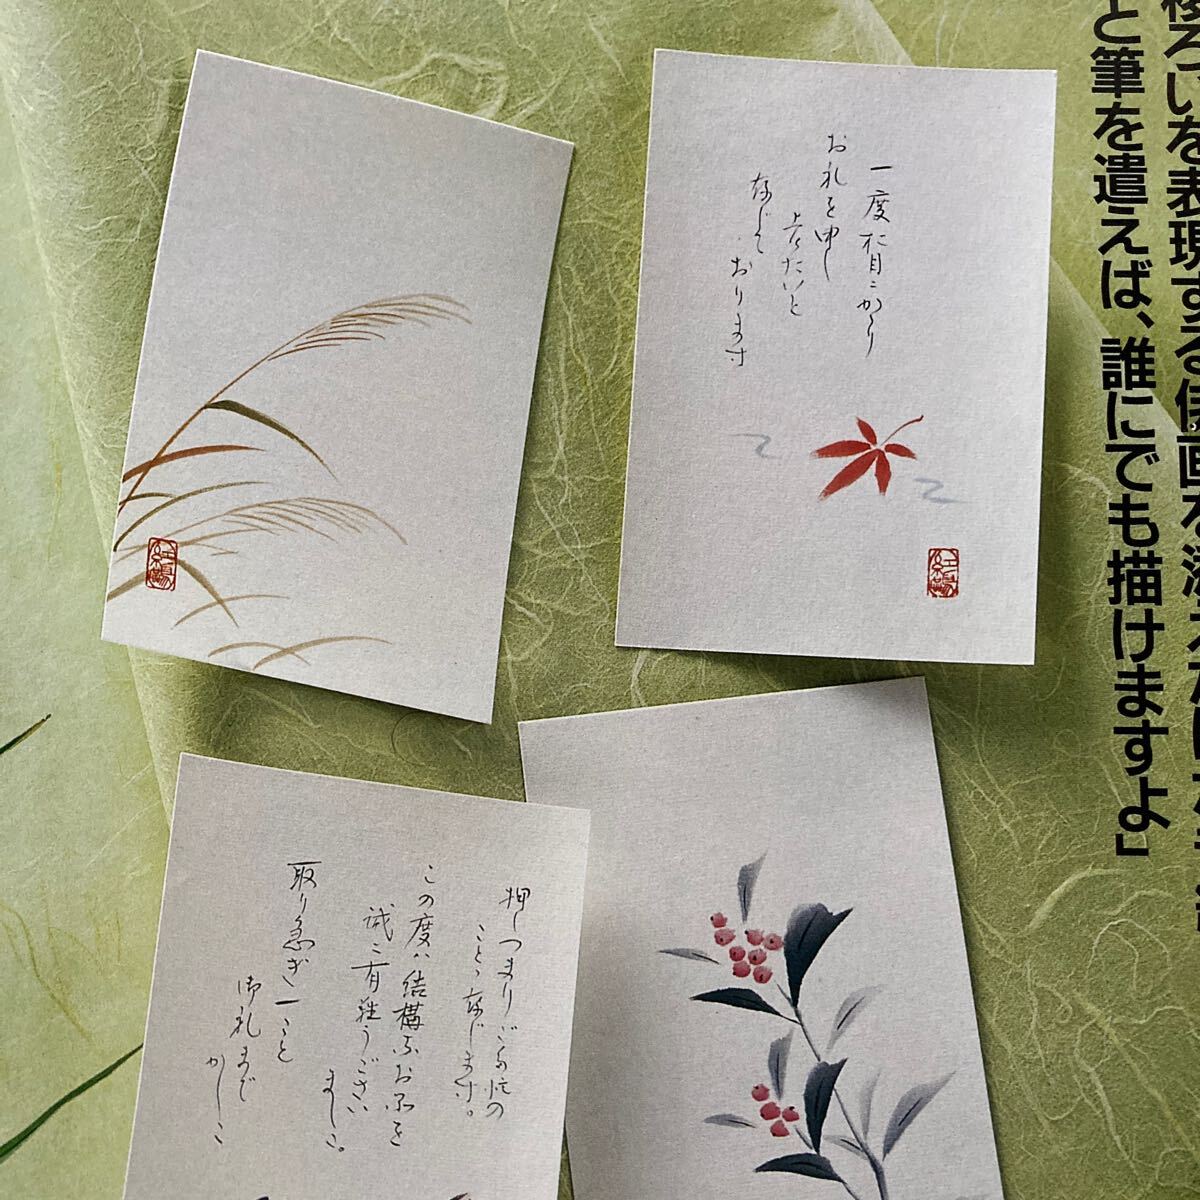 一度お目にかかり
お礼を申し
上げたいと
存じて
おります
押しつまりご多忙の
ことゝ存じます。
この度は結構なお品を
誠に有難うござい
ました。
取り急ぎ一こと
御礼まで
かしこ
ろいを表現する俳画
と筆を遣えば、誰にでも描けますよ」